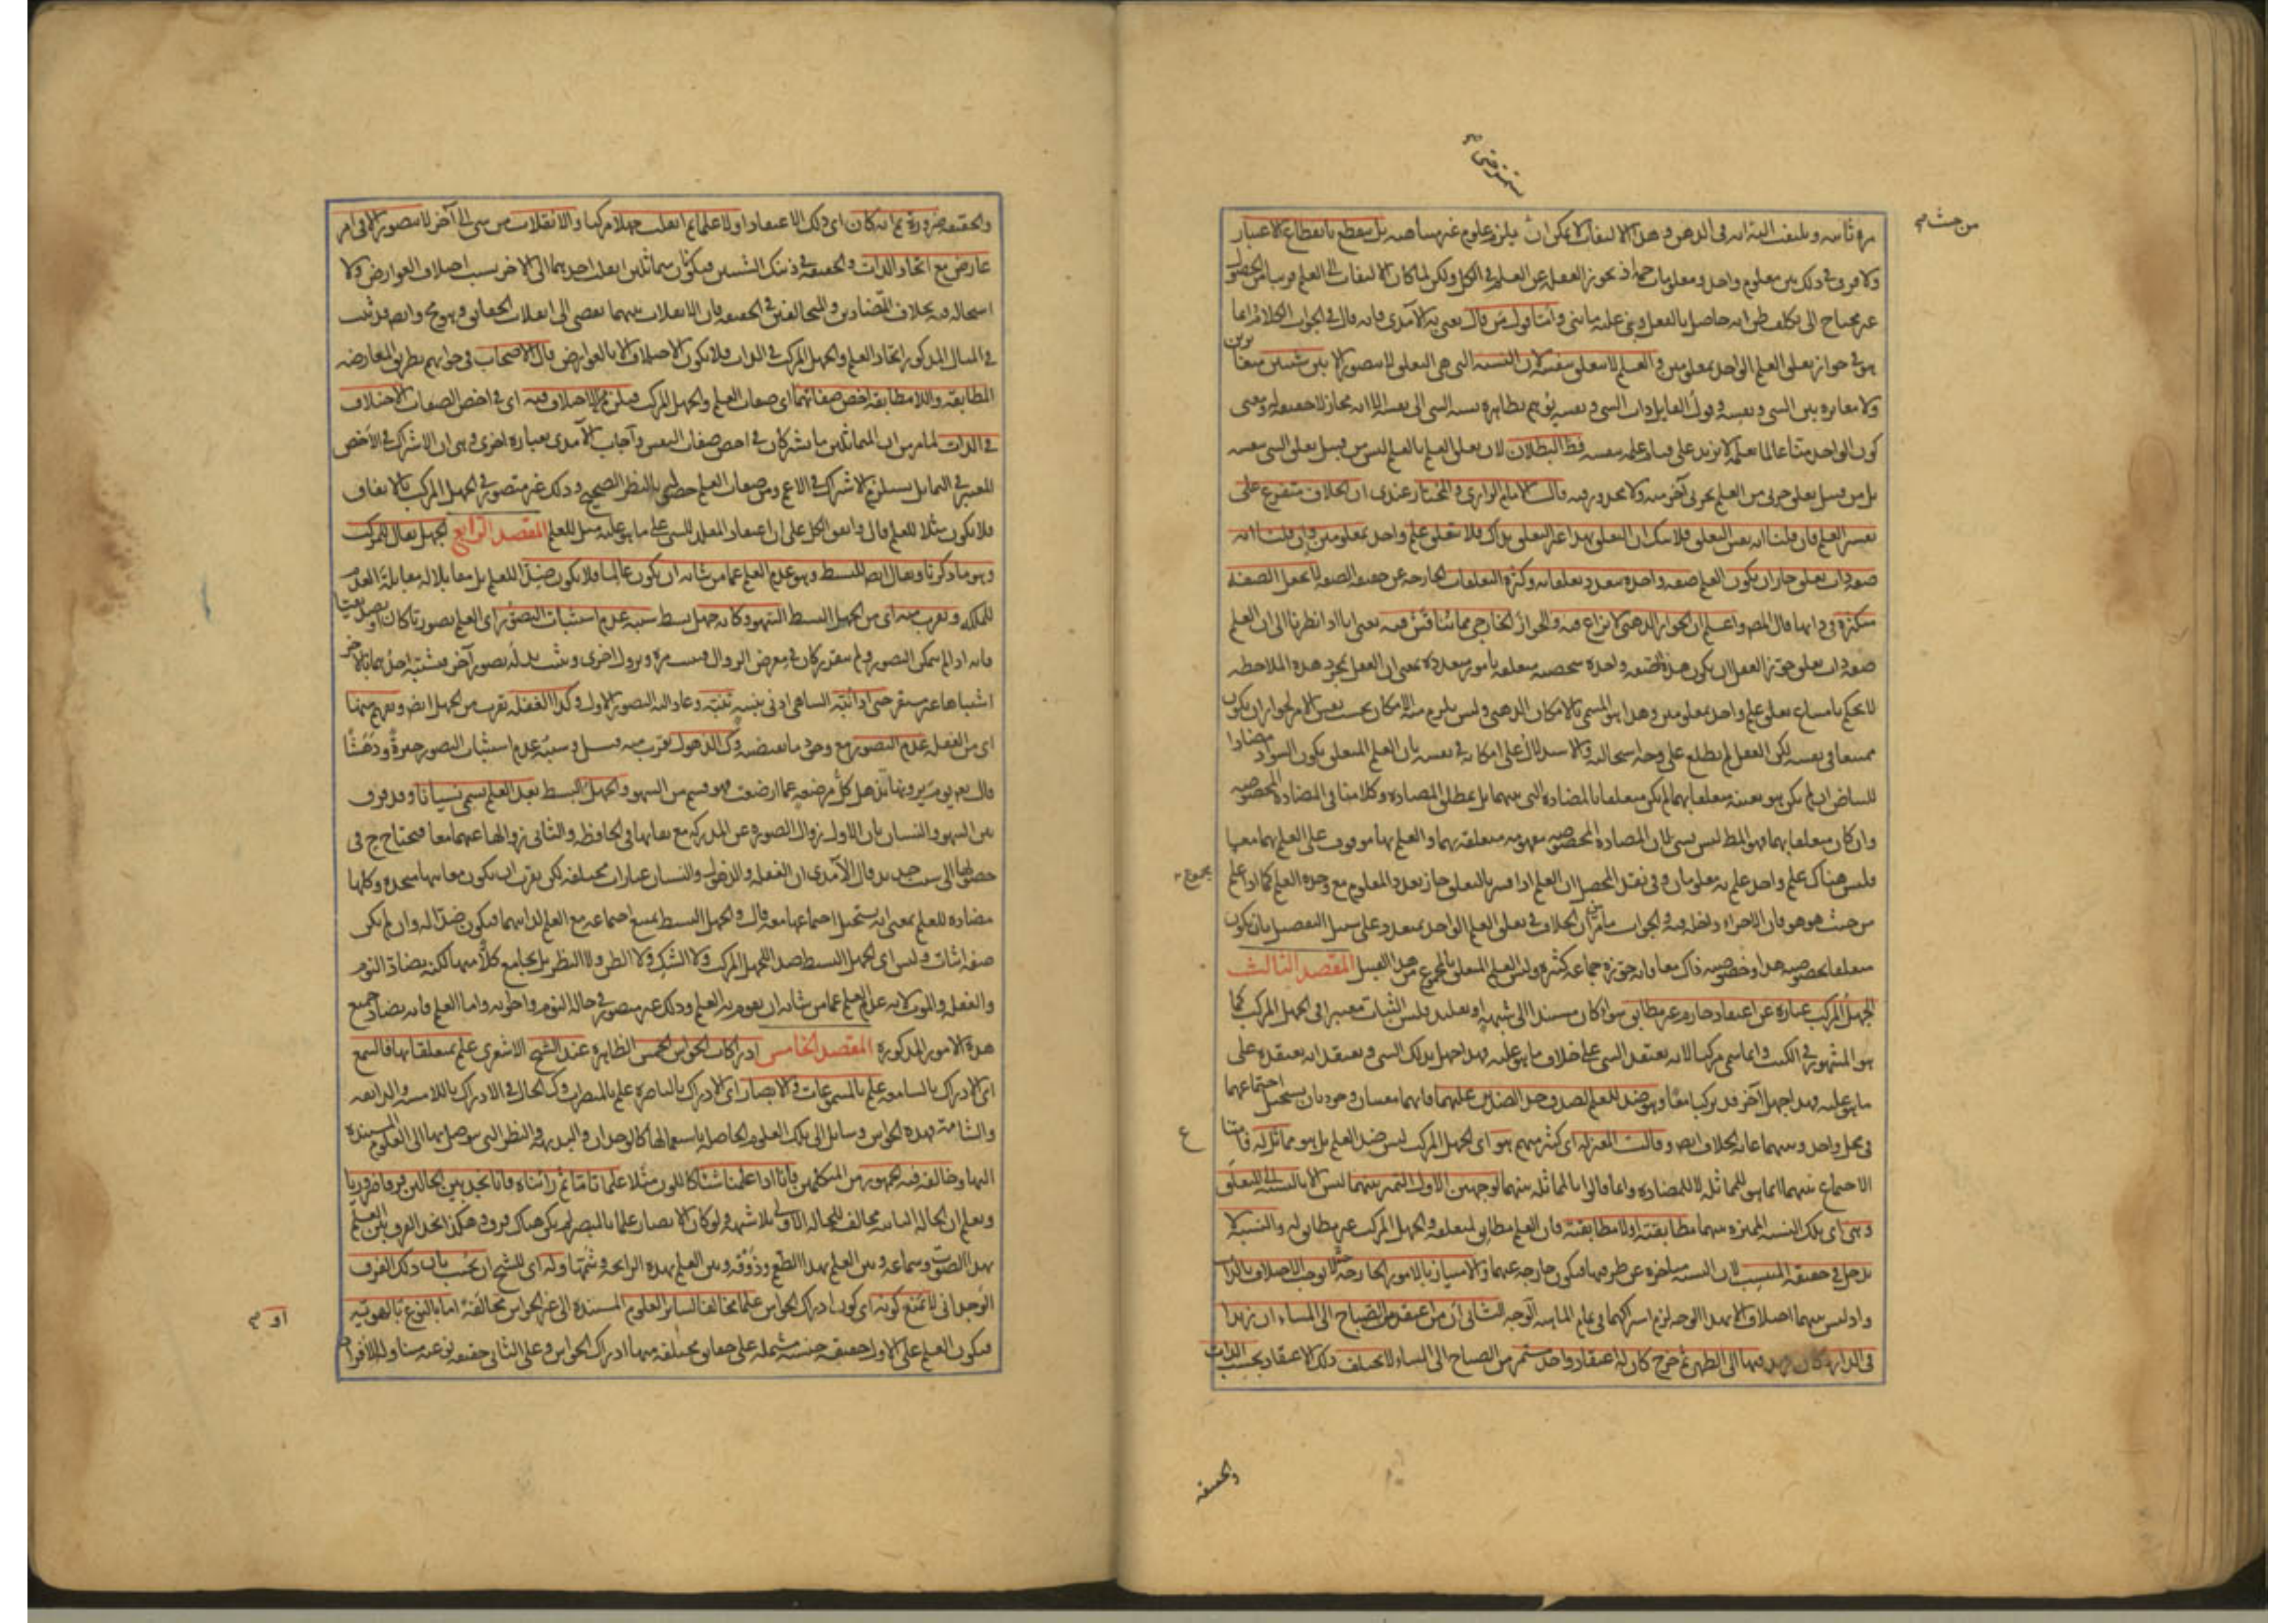 من حيث م
مرة ثانية ويلتفت اليه انه في الذهن وهذا الالتفات لا يمكن ان يلزم علوم غير متناهية بل ينقطع بانقطاع الاعتبار
ولا فرق في ذلك بين معلوم واحد ومعلومات جمة اذ يجوز الغفلة عن العلم في الكل ولكن لما كان الالتفات الى العلم قريبا من الحصول
غير محتاج الى تكلف ظن انه حاصل بالفعل وبنى عليه ما بنى واما قول من قال يعني به الآمدي فانه قال في الجواب الكلام انما
هو في جواز تعلق العلم الواحد بمعلومين والعلم لا يتعلق بنفسه لان النسبة التي هي التعلق لا تتصور الا بين شيئين متغايرين
ولا مغايرة بين الشيء ونفسه وقول القائل ذات الشيء ونفسه يوهم بظاهره نسبة الشيء الى نفسه الا انه مجاز لا حقيقة له ومعنى
كون الواحد منا عالما بعلمه لا يزيد على قيام علمه بنفسه فظ البطلان لان تعلق العلم بالعلم ليس من قبيل تعلق الشيء بنفسه
بل من قبيل تعلق جزئي من العلم بجزئي آخر منه ولا محذور فيه قال الامام الرازي والمختار عندي ان الخلاف متفرع على
تفسير العلم فان قلنا انه نفس التعلق فلا شك ان التعلق بهذا غير التعلق بذاك فلا يتعلق علم واحد بمعلومين وان قلنا انه
صفة ذات تعلق جاز ان يكون العلم صفة واحدة يتعدد تعلقاته وكثرة التعلقات الخارجة عن حقيقة الصفة لا تجعل الصفة
متكثرة في ذاتها قال المص واعلم ان الجواز الذهني لا نزاع فيه والجواز الخارجي مما يناقش فيه يعني انا اذا نظرنا الى ان العلم
صفة ذات تعلق جوز العقل ان يكون هذه الصفة واحدة شخصية متعلقة بامور متعددة بمعنى ان العقل بمجرد هذه الملاحظة
لا يحكم بامتناع تعلق علم واحد بمعلومين وهذا هو المسمى بالامكان الذهني وليس يلزم منه الامكان بحسب نفس الامر لجواز ان يكون
ممتنعا في نفسه لكن العقل لم يطلع على وجه استحالته والاستدلال على امكانه في نفسه بان العلم المتعلق بكون السواد مضادا
للبياض ان لم يكن هو بعينه متعلقا بهما لم يكن متعلقا بالمضادة التي بينهما بل بمطلق المضادة وكلامنا في المضادة المخصوصة
وان كان متعلقا بهما فهو المط ليس بشيء لان المضادة المخصوصة مفهومة متعلقة بهما والعلم بها موقوف على العلم بهما معا
فليس هناك علم واحد علم به معلومان وفي نقد المحصل ان العلم اذا فسر بالتعلق جاز تعدد المعلوم مع وحدة العلم كما اذا علم
مجموع
من حيث هو هو فان الاجزاء داخلة فيه والجواب ما مر من ان الخلاف في تعلق العلم الواحد بمتعدد على سبيل التفصيل بان يكون
متعلقا بخصوصية هذا وخصوصية ذاك معا وانه جوزه جماعة كثيرة وليس العلم المتعلق بالمجموع من هذا القبيل المقصد الثالث
الجهل المركب عبارة عن اعتقاد جازم غير مطابق سواء كان مستندا الى شبهة او تقليد فليس الثبات معتبرا في الجهل المركب كما
هو المشهور في الكتب وانما سمي مركبا لانه يعتقد الشيء على خلاف ما هو عليه فهذا جهل بذلك الشيء ويعتقد انه يعتقده على
ما هو عليه فهذا جهل آخر قد تركبا معا وهو ضد للعلم لصدق حد الضدين عليهما فانهما معنيان وجوديان يستحيل اجتماعهما
في محل واحد وبينهما غاية الخلاف ايض وقالت المعتزلة اي كثير منهم هو اي الجهل المركب ليس ضد العلم بل هو مماثل له فامتناع
الاجتماع بينهما انما هو للمماثلة لا للمضادة وانما قالوا بالمماثلة بينهما لوجهين الاول التميز بينهما ليس الا بالنسبة الى المتعلق
وهي اي تلك النسبة المميزة بينهما مطابقته او لا مطابقته فان العلم مطابق لمتعلقه والجهل المركب غير مطابق له والنسبة لا
تدخل في حقيقة المنتسب لان النسبة متاخرة عن طرفيها فتكون خارجة عنهما والامتياز بالامور الخارجة لا يوجب الاختلاف بالذات
واذ ليس بينهما اختلاف الا بهذا الوجه لزم اشتراكهما في تمام الماهية الوجه الثاني ان من اعتقد من الصباح الى المساء ان زيدا
في الدار وكان زيد فيها الى الظهر ثم خرج كان له اعتقاد واحد مستمر من الصباح الى المساء لا يختلف ذلك الاعتقاد بحسب الذات
والحقيقة
والحقيقة ضرورة ثم انه كان اي ذلك الاعتقاد اولا علما ثم انقلب جهلا مركبا والانقلاب من شيء الى آخر لا يتصور الا في امر
عارض مع اتحاد الذات والحقيقة في ذينك الشيئين فيكونان متماثلين انقلب احدهما الى الآخر بسبب اختلاف العوارض ولا
استحالة فيه بخلاف المتضادين والمتخالفين في الحقيقة فان الانقلاب بينهما يفضي الى انقلاب الحقائق وهو مح وايض قد ثبت
في المثال المذكور اتحاد العلم والجهل المركب في الذات فلا يكون الاختلاف الا بالعوارض قال الاصحاب في جوابهم بطريق المعارضة
المطابقة واللا مطابقة اخص صفاتهما اي صفات العلم والجهل المركب فيلزم من الاختلاف فيه اي في اخص الصفات الاختلاف
في الذات لما مر من ان المتماثلين ما يشتركان في اخص صفات النفس واجاب الآمدي بعبارة اخرى وهي ان الاشتراك في الاخص
المعتبر في التماثل يستلزم الاشتراك في الاعم ومن صفات العلم حصوله بالنظر الصحيح وذلك غير متصور في الجهل المركب بالاتفاق
فلا يكون مثلا للعلم قال واتفق الكل على ان اعتقاد المقلد للشيء على ما هو عليه مثل للعلم المقصد الرابع الجهل يقال للمركب
وهو ما ذكرنا ويقال ايض للبسيط وهو عدم العلم عما من شانه ان يكون عالما فلا يكون ضدا للعلم بل مقابلا له مقابلة العدم
للملكة ويقرب منه اي من الجهل البسيط السهو وكانه جهل بسيط سببه عدم استثبات التصور اي العلم تصوريا كان او تصديقيا
فانه اذا لم يتمكن التصور ولم يتقرر كان في معرض الزوال فيثبت مرة ويزول اخرى ويثبت بدله تصور آخر فيشتبه احدهما بالآخر
اشتباها غير مستقر حتى اذا نبه الساهي ادنى تنبيه تنبه وعاد اليه التصور الاول وكذا الغفلة يقرب من الجهل ايض ويفهم منها
اي من الغفلة عدم التصور مع وجود ما يقتضيه وكذا الذهول يقرب منه قيل وسببه عدم استثبات التصور حيرة ودهشا
قال تع يوم ترونها تذهل كل مرضعة عما ارضعت فهو قسم من السهو والجهل البسيط بعد العلم يسمى نسيانا وقد فرق
بين السهو والنسيان بان الاول زوال الصورة عن المدركة مع بقائها في الحافظة والثاني زوالها عنهما معا فيحتاج ح في
حصولها الى سبب جديد قال الآمدي ان الغفلة والذهول والنسيان عبارات مختلفة لكن يقرب ان يكون معانيها متحدة وكلها
مضادة للعلم بمعنى انه يستحيل اجتماعها معه قال والجهل البسيط يمتنع اجتماعه مع العلم لذاتيهما فيكون ضدا له وان لم يكن
صفة اثبات وليس اي الجهل البسيط ضدا للجهل المركب ولا الشك ولا الظن ولا النظر بل يجامع كلا منها لكنه يضاد النوم
والغفلة والموت لانه عدم العلم عما من شانه ان يقوم به العلم وذلك غير متصور في حالة النوم واخواته واما العلم فانه يضاد جميع
هذه الامور المذكورة المقصد الخامس ادراكات الحواس الخمس الظاهرة عند الشيخ الاشعري علم بمتعلقاتها فالسمع
اي الادراك بالسامعة علم بالمسموعات والابصار اي الادراك بالباصرة علم بالمبصرات وكذا الحال في الادراك باللامسة والذائقة
والشامة فهذه الحواس وسائل الى تلك العلوم الحاصلة باستعمالها كالوجدان والبديهة والنظر التي يتوصل بها الى العلوم المستندة
اليها وخالفه فيه الجمهور من المتكلمين فانا اذا علمنا شيئا كاللون مثلا علما تاما ثم رأيناه فانا نجد بين الحالين فرقا ضروريا
ونعلم ان الحالة الثانية مخالف للحالة الاولى بلا شبهة ولو كان الابصار علما بالمبصر لم يكن هناك فرق وهكذا نجد الفرق بين العلم
بهذا الصوت وسماعه وبين العلم بهذا الطعم وذوقه وبين العلم بهذه الرائحة وشمها وله اي للشيخ ان يجيب بان ذلك الفرق
الوجداني لا يمنع كونه اي كون ادراك الحواس علما مخالفا لسائر العلوم المستندة الى غير الحواس مخالفة اما بالنوع او بالهوية
فيكون العلم على الاول حقيقة جنسية مشتملة على حقائق مختلفة منها ادراك الحواس وعلى الثاني حقيقة نوعية متناولة للافراد